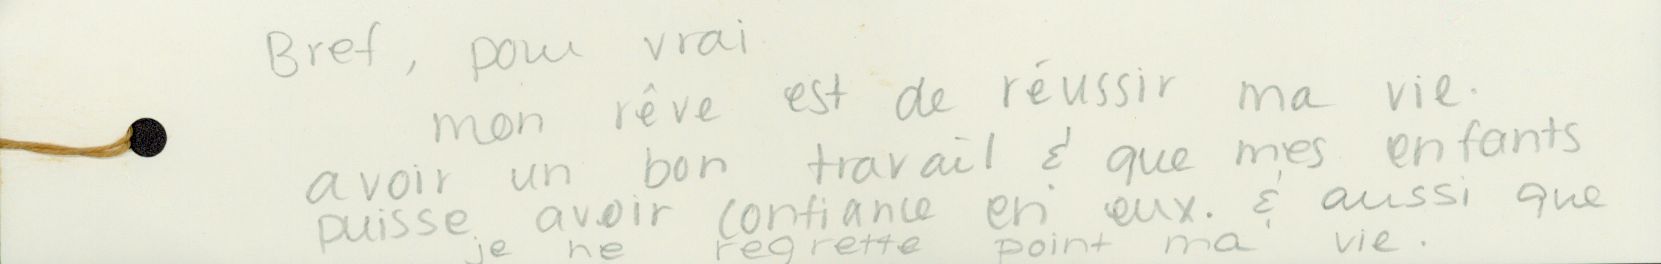 Bref, pour vrai
mon rêve est de réussir ma vie.
avoir un bon travail & que mes enfants
puisse avoir confiance en eux. & aussi que
je ne regrette point ma vie.